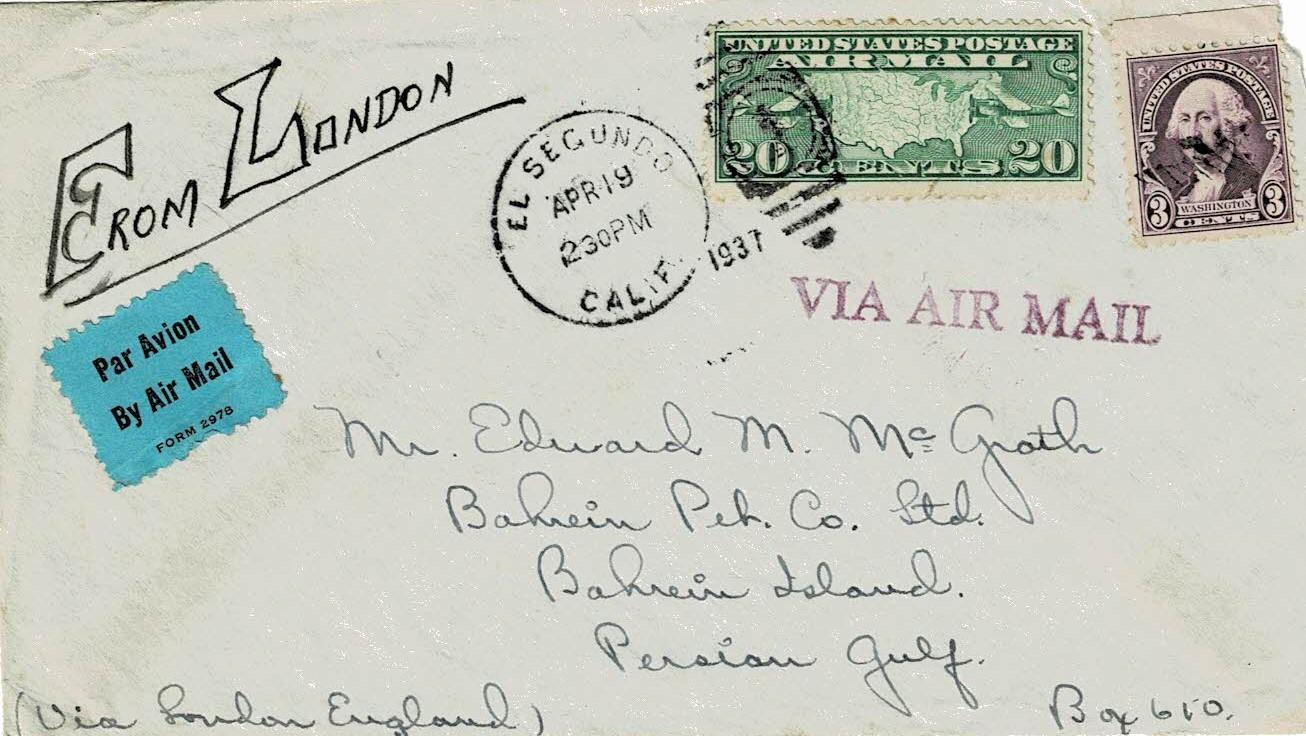 FROM LONDON
UNITED STATES POSTAGE
AIR MAIL
20 CENTS 20
UNITED STATES POSTAGE
WASHINGTON
3 CENTS 3
EL SEGUNDO
APR 19
230PM
CALIF.
1937
VIA AIR MAIL
Par Avion
By Air Mail
FORM 2978
Mr. Edward M. Mc Grath
Bahrein Pet. Co. Ltd.
Bahrein Island.
Persian Gulf.
(Via London England)
Box 610.